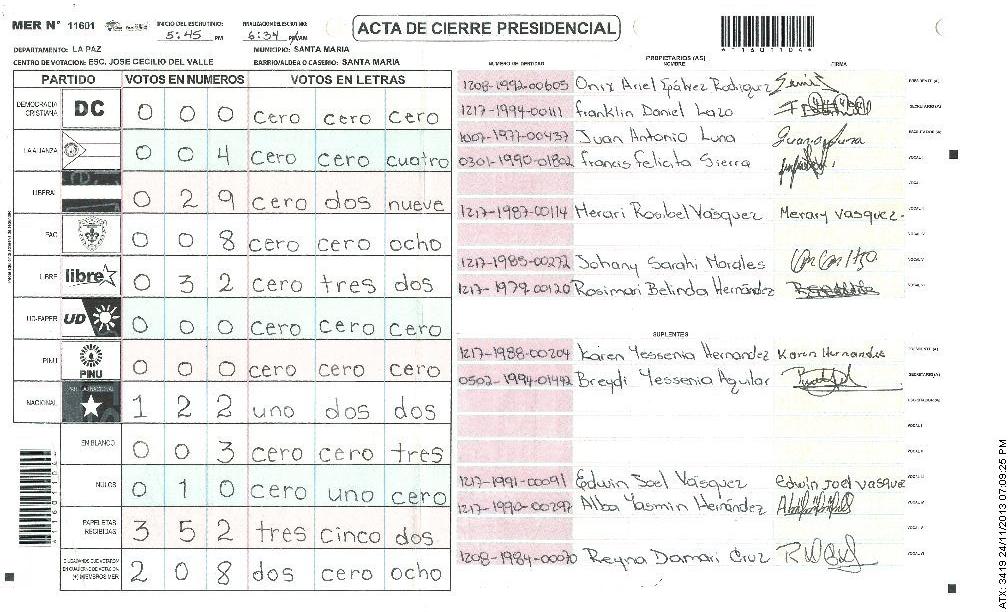 MER N° 11601 INICIO DEL ESCRUTINIO: 5:45 PM FINALIZACION DEL ESCRUTINIO: 6:34 PM/AM ACTA DE CIERRE PRESIDENCIAL
1 1 6 0 1 1 0 4
DEPARTAMENTO: LA PAZ MUNICIPIO: SANTA MARIA
CENTRO DE VOTACION: ESC. JOSE CECILIO DEL VALLE BARRIO/ALDEA O CASERIO: SANTA MARIA
PARTIDO VOTOS EN NUMEROS VOTOS EN LETRAS
DEMOCRACIA CRISTIANA DC 0 0 0 cero cero cero
LA ALIANZA 0 0 4 cero cero cuatro
LIBERAL 0 2 9 cero dos nueve
PAC 0 0 8 cero cero ocho
LIBRE libre 0 3 2 cero tres dos
UD-FAPER UD 0 0 0 cero cero cero
PINU PINU 0 0 0 cero cero cero
NACIONAL 1 2 2 uno dos dos
EN BLANCO 0 0 3 cero cero tres
NULOS 0 1 0 cero uno cero
PAPELETAS RECIBIDAS 3 5 2 tres cinco dos
CIUDADANOS QUE VOTARON EN CUADERNO DE VOTACION (+) MIEMBROS MER 2 0 8 dos cero ocho
PROPIETARIOS (AS)
NUMERO DE IDENTIDAD NOMBRE FIRMA
1208-1992-00605 Onix Ariel Gálvez Rodriguez PRESIDENTE (A)
1217-1994-00111 Franklin Daniel Lazo SECRETARIO (A)
1007-1977-00437 Juan Antonio Luna ESCRUTADOR (A)
0301-1990-01802 Francis Felicita Sierra VOCAL I
1217-1987-00114 Merari Rosibel Vásquez Merary Vasquez
1217-1985-00272 Johany Sarahi Morales
1217-1979-00120 Rosimari Belinda Hernández
SUPLENTES
1217-1988-00204 Karen Yessenia Hernandez Karen Hernandez PRESIDENTE (A)
0502-1994-01492 Breydi Yessenia Aguilar SECRETARIO (A)
ESCRUTADOR (A)
1217-1991-00091 Edwin Joel Vásquez edwin joel vasquez
1217-1990-00297 Alba Yasmin Hernández
1208-1984-00070 Reyna Damari Cruz
ATX: 3419 24/11/2013 07:09:25 PM